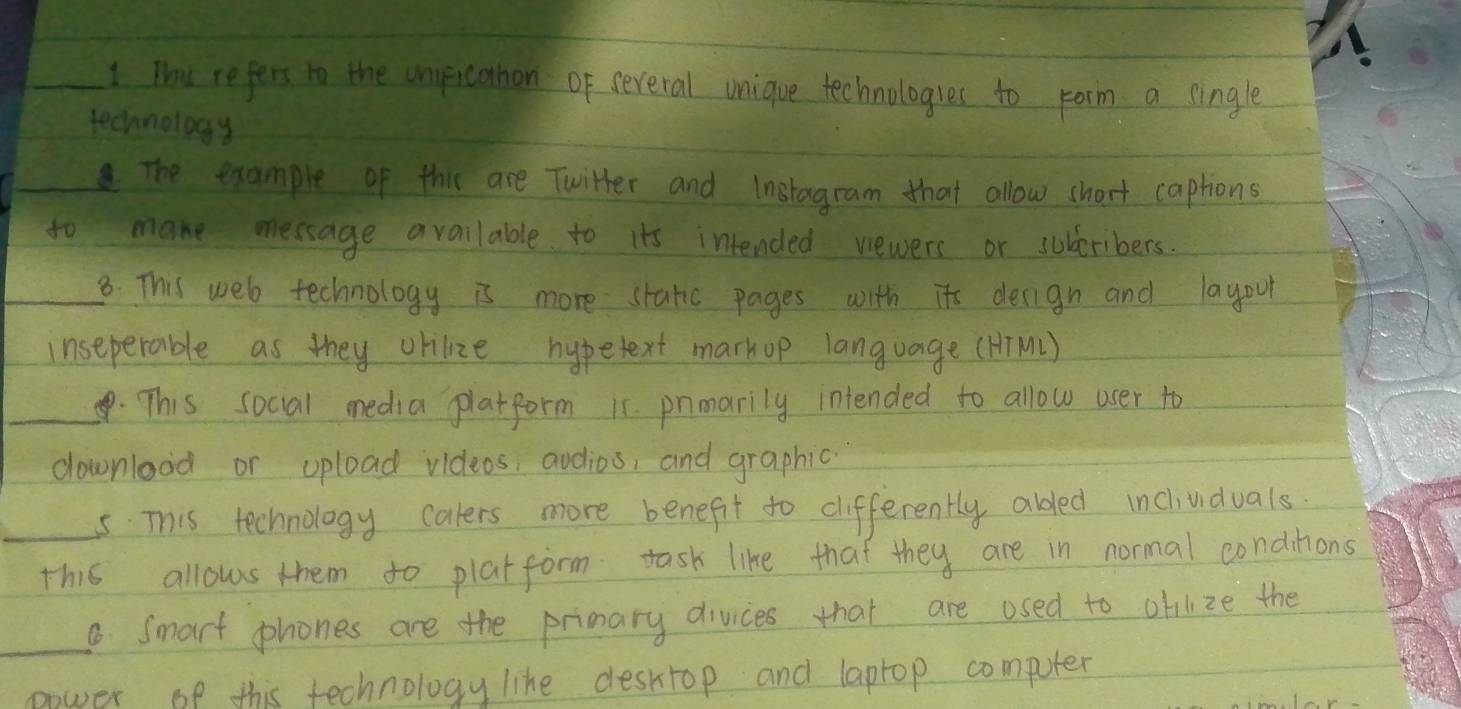 1 This refers to the unification of several unique technologies to form a single
technology
The example of this are Twitter and Instagram that allow short captions
to make message available to its intended viewers or subcribers.
3. This web technology is more static pages with its design and layout
inseperable as they utilize hypetext markup language (HTML)
This social media platform is primarily intended to allow user to
download or upload videos, audios, and graphic.
5. This technology caters more benefit to differently abled individuals.
this allows them to platform task like that they are in normal conditions
6 Smart phones are the primary divices that are used to utilize the
power of this technology like desktop and laptop computer